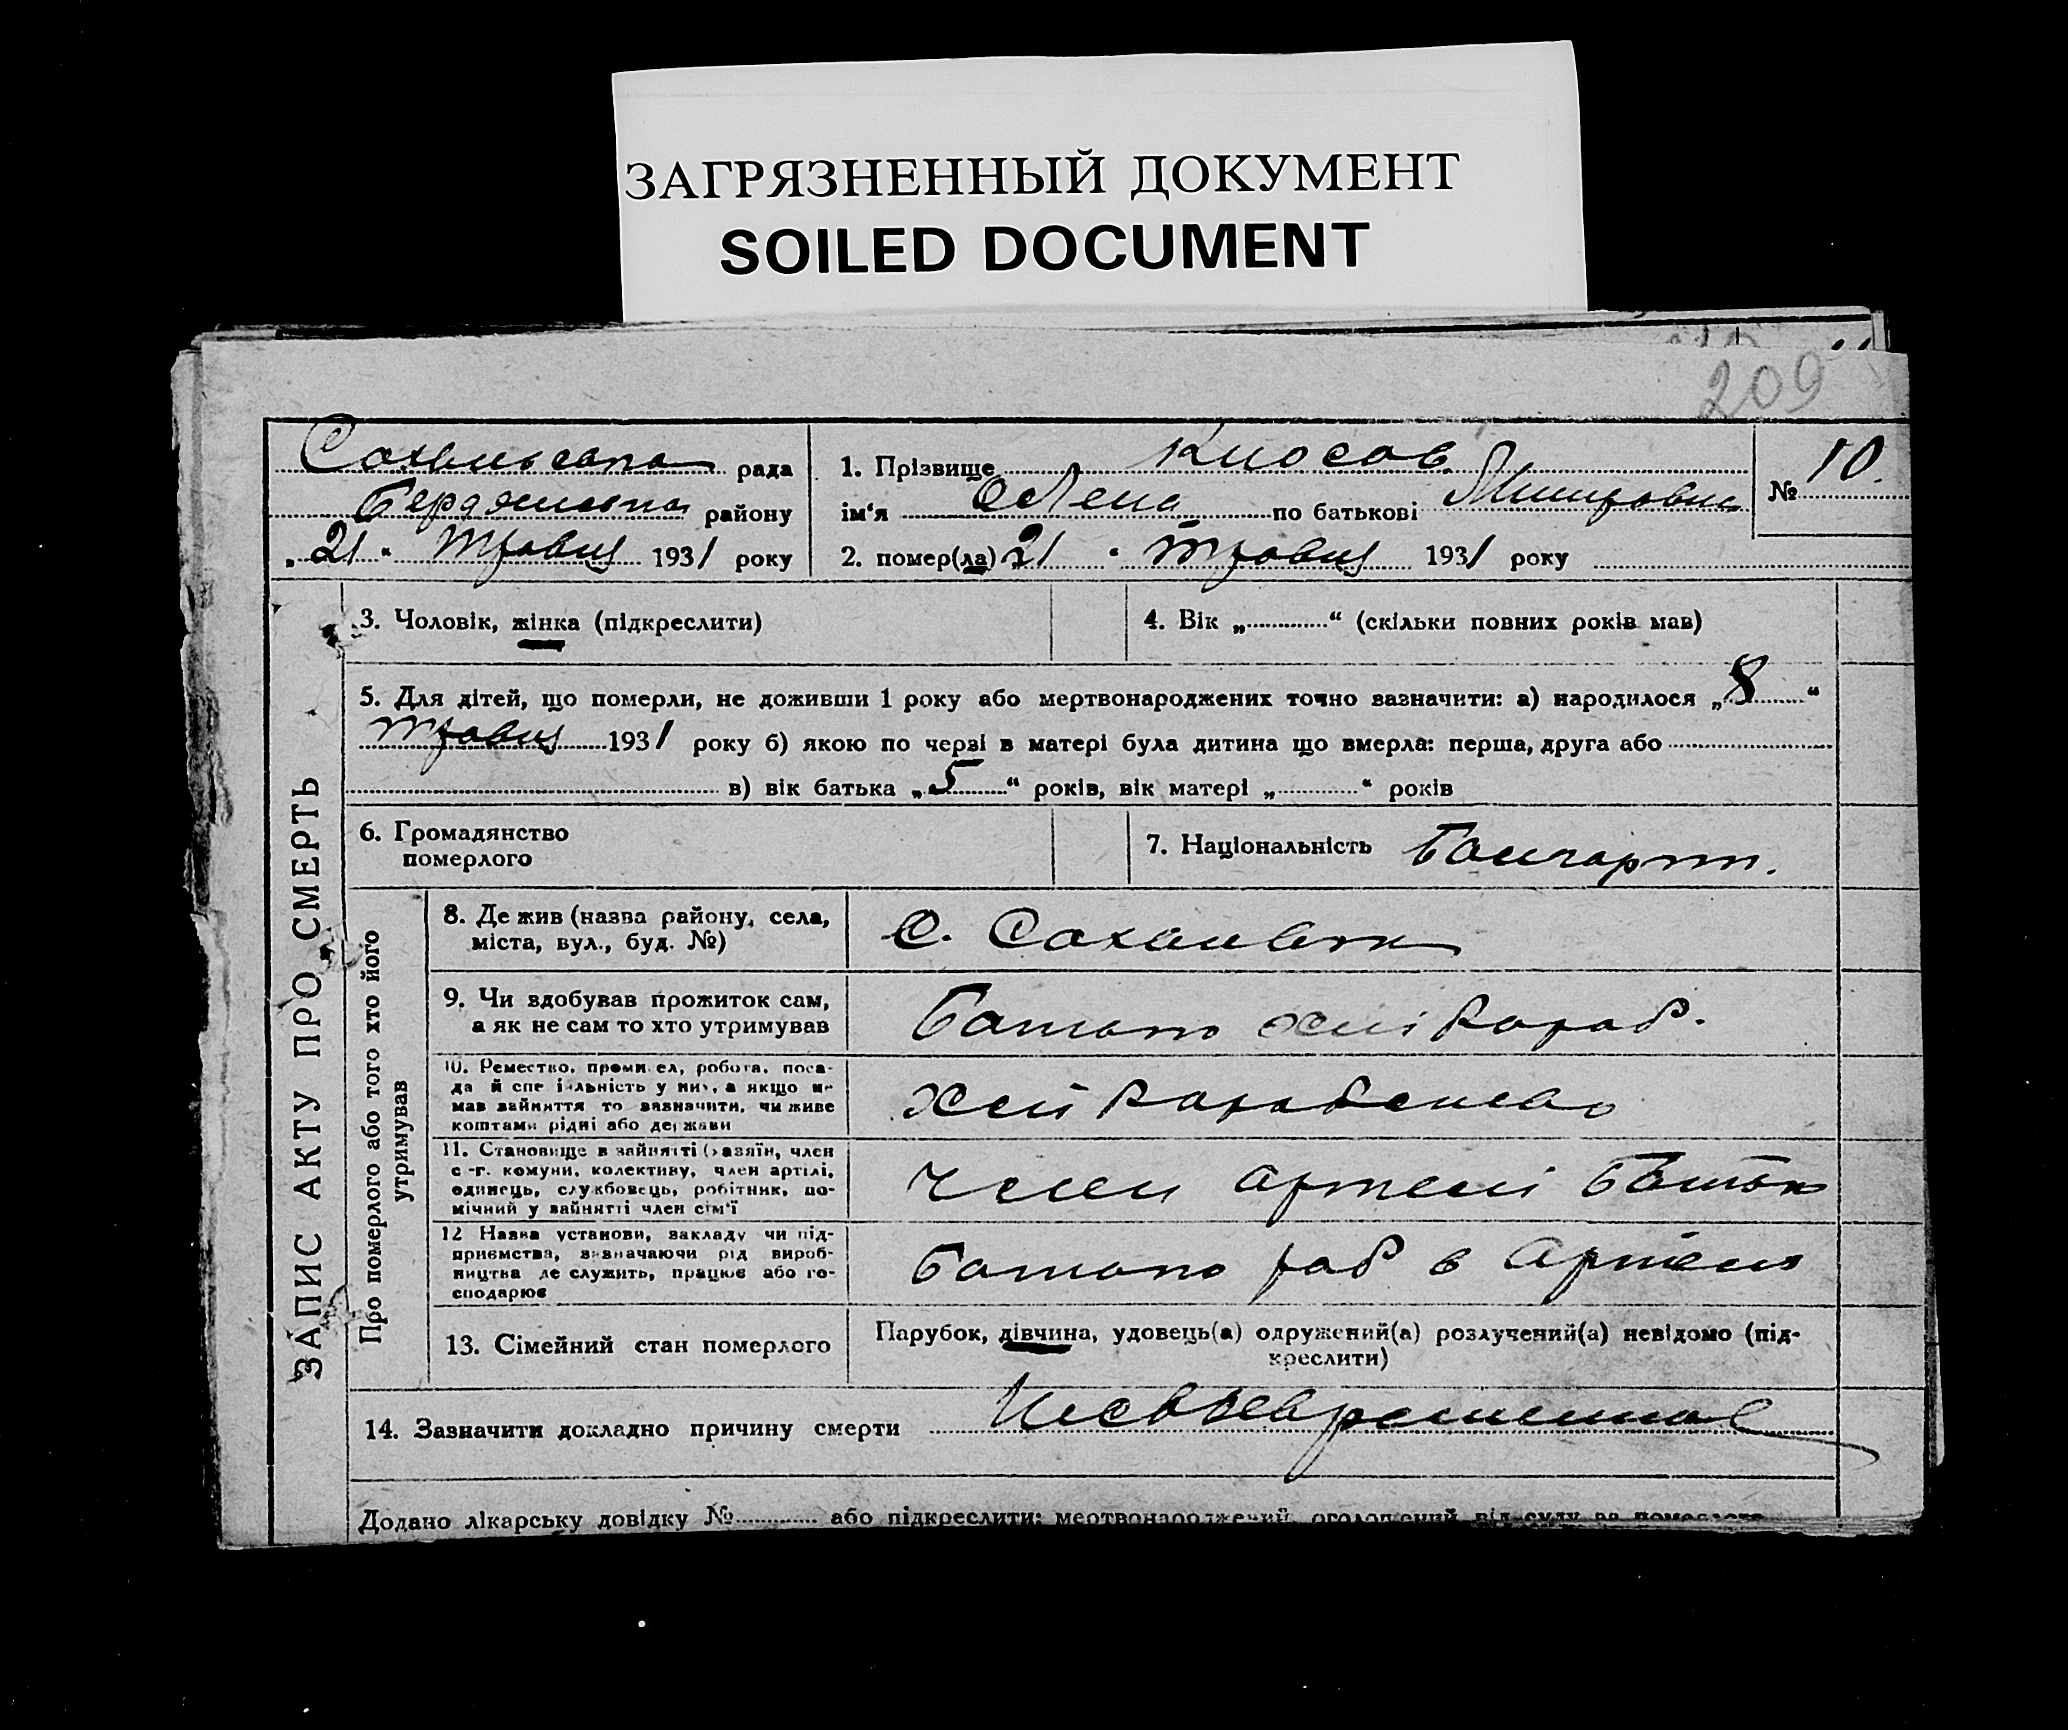 ЗАГРЯЗНЕННЫЙ ДОКУМЕНТ
SOILED DOCUMENT
209
рада
району
„21“ Травня 1931 року
1. Прізвище Кіосов
ім'я Олена по батькові
№ 10.
2. помер(ла) 21 “ травня 1931 року
ЗАПИС АКТУ ПРО СМЕРТЬ
3. Чоловік, жінка (підкреслити)
4. Вік „ “ (скільки повних років мав)
5. Для дітей, що померли, не доживши 1 року або мертвонароджених точно зазначити: а) народилося „8“
травня 1931 року б) якою по черзі в матері була дитина що вмерла: перша, друга або
в) вік батька „5“ років, вік матері „ “ років
6. Громадянство
померлого
7. Національність
Про померлого або того хто його
утримував
8. Де жив (назва району, села,
міста, вул., буд. №)
С.
9. Чи здобував прожиток сам,
а як не сам то хто утримував
Батько хлібороб.
10. Ремество, промисел, робота, поса-
да й спеціяльність у ній, а якщо не
мав зайняття то зазначити, чи живе
коштами рідні або держави
11. Становище в зайнятті (хазяїн, член
с.-г. комуни, колективу, член артілі,
одинець, службовець, робітник, по-
мічний у зайнятті член сім'ї
член артелі батько
12 Назва установи, закладу чи під-
приємства, визначаючи рід вироб-
ництва де служить, працює або го-
сподарює
Батько раб в Артели
13. Сімейний стан померлого
Парубок, дівчина, удовець(а) одружений(а) розлучений(а) невідомо (під-
креслити)
14. Зазначити докладно причину смерти
Додано лікарську довідку № або підкреслити: мертвонароджений, оголошений від суду за померлого